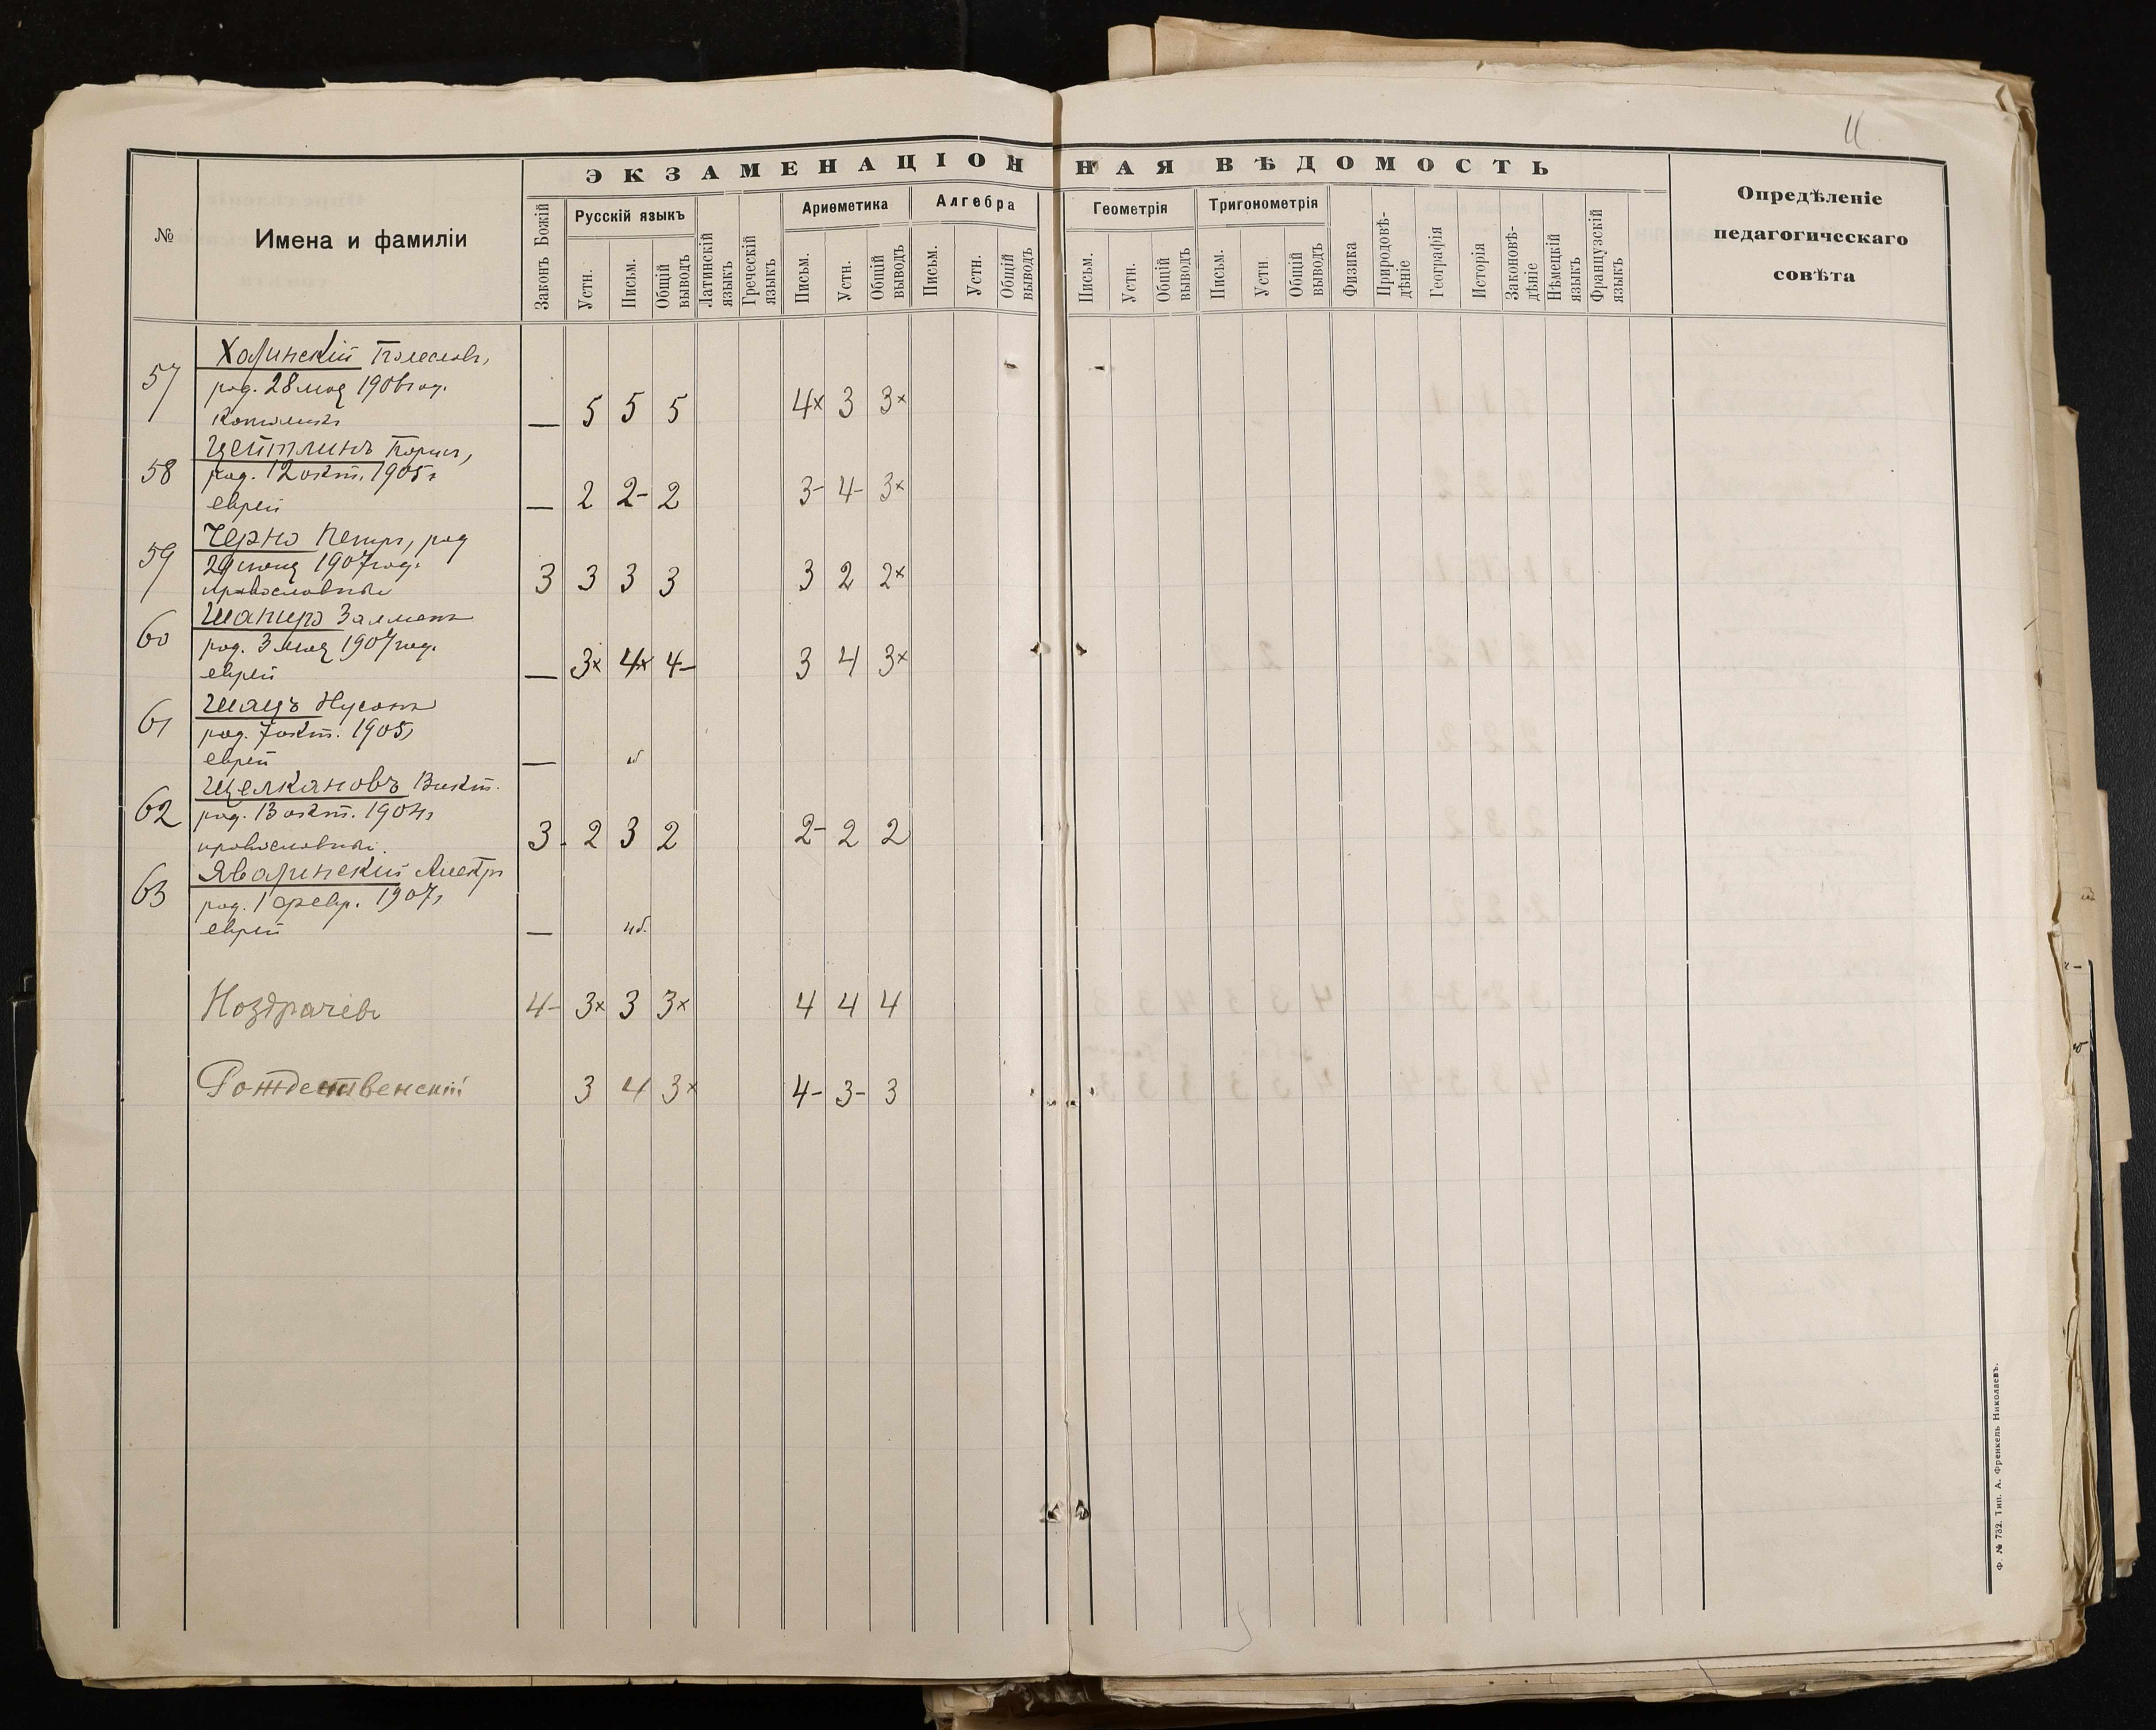 11
ЭКЗАМЕНАЦІОННАЯ ВѢДОМОСТЬ
№
Имена и фамиліи
Законъ Божій
Русскій языкъ
Устн.
Письм.
Общій выводъ
Латинскій языкъ
Греческій языкъ
Ариѳметика
Письм.
Устн.
Общій выводъ
Алгебра
Письм.
Устн.
Общій выводъ
Геометрія
Письм.
Устн.
Общій выводъ
Тригонометрія
Письм.
Устн.
Общій выводъ
Физика
Природовѣ-
дѣніе
Географія
Исторія
Законовѣ-
дѣніе
Нѣмецкій языкъ
Французскій языкъ
Опредѣленіе
педагогическаго
совѣта
57 Болеславъ,
род. 28 мая 1906 год.
католикъ — 5 5 5 4× 3 3×
58 Цейтлинъ Борисъ,
род. 12 окт. 1905 г
еврей — 2 2- 2 3- 4- 3×
59 Черно Петръ, род
29 1907 год.
православный 3 3 3 3 3 2 2×
60 Шапиро Залманъ
род. 3 мая 1907 год.
еврей — 3× 4× 4- 3 4 3×
61 Шацъ Нусонъ
род. 7 окт. 1905 г
еврей —
62 Щелкановъ Викт.
род. 13 окт. 1904 г
православный. 3- 2 3 2 2- 2 2
63
род. 1 февр. 1907 г
еврей — нб.
Ноздрачевъ 4- 3× 3 3× 4 4 4
Рождественскій 3 4 3× 4- 3- 3
Ф. № 732. Тип. А. Френкель Николаевъ.